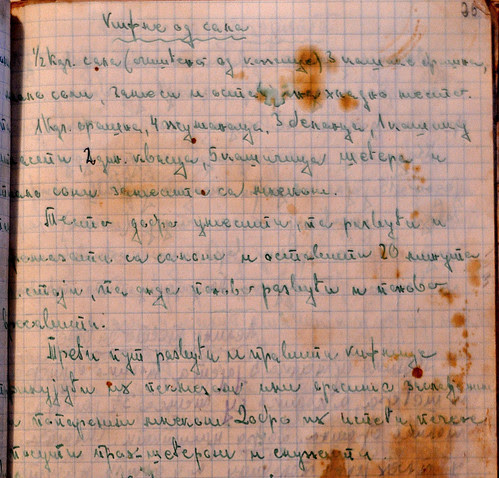 26
Кифле од сала
1/2 кгр. сала (очишћеног од кожице) 3 кашике брашна,
мало соли, замеси и остави на хладно место.
1 кгр. брашна, 4 жуманца, 3 беланца, 1 кашику
масти, 2 дкг. квасца, 5 кашичица шећера и
мало соли замесити са млеком.
Тесто добро умесити, па развути и
намазати са салом и оставити 20 минута
да стоји, па онда поново развући и поново
оставити.
Трећи пут развући и правити кифлице
пунити их пекмезом или орасима
и попареним млеком. Добро их испећи,
посути прах-шећером и служити.